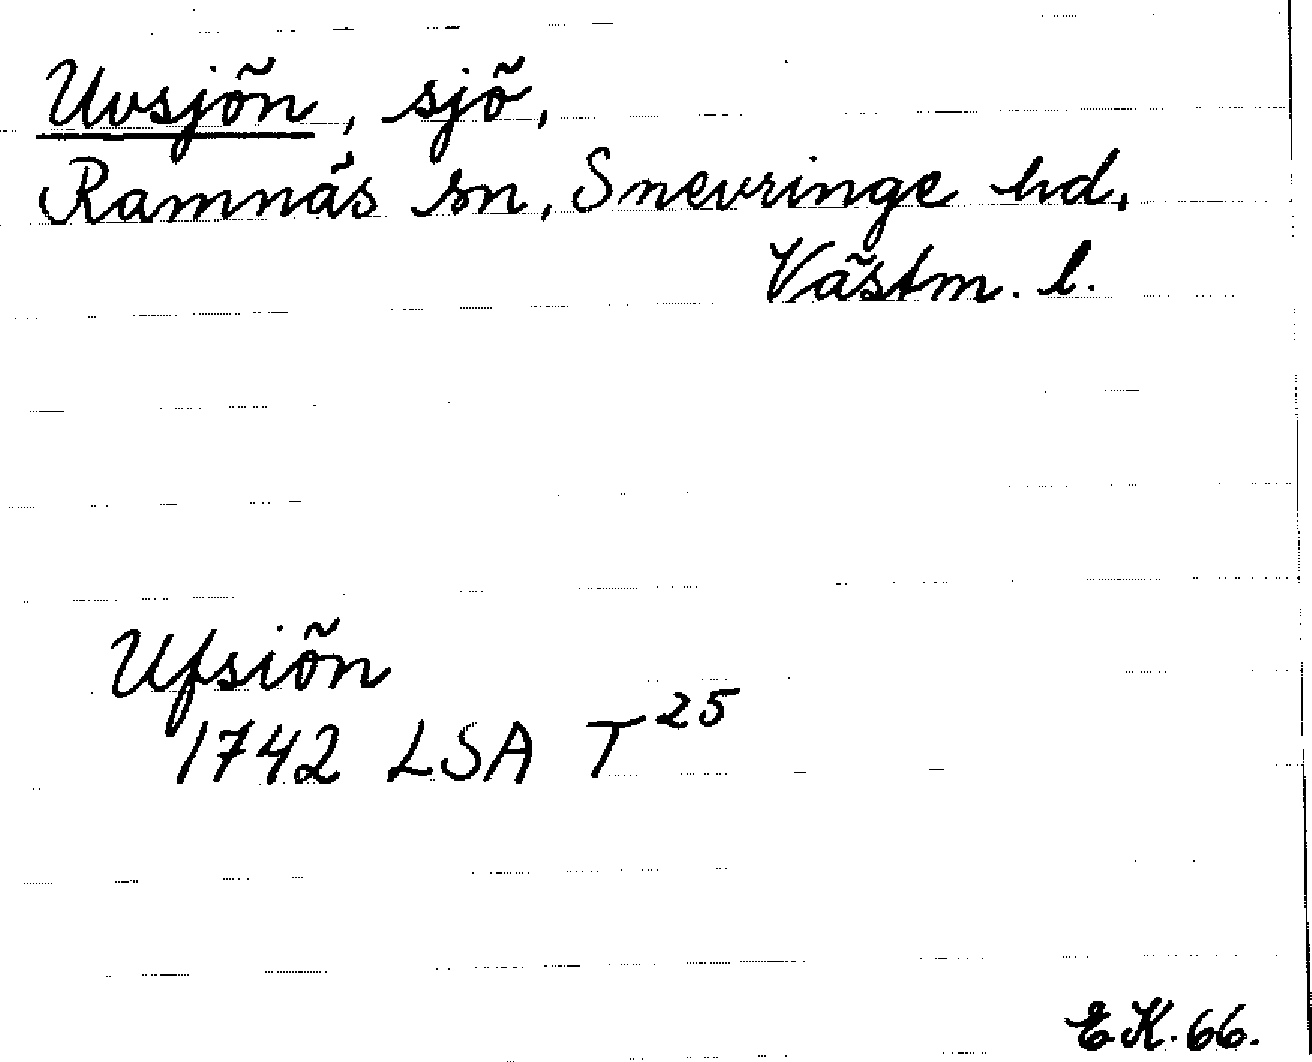 Uvsjön, sjö,
Ramnäs sn, Snevringe hd,
Västm. l.
Ufsiön
1742 LSA T25
E.K. 66.